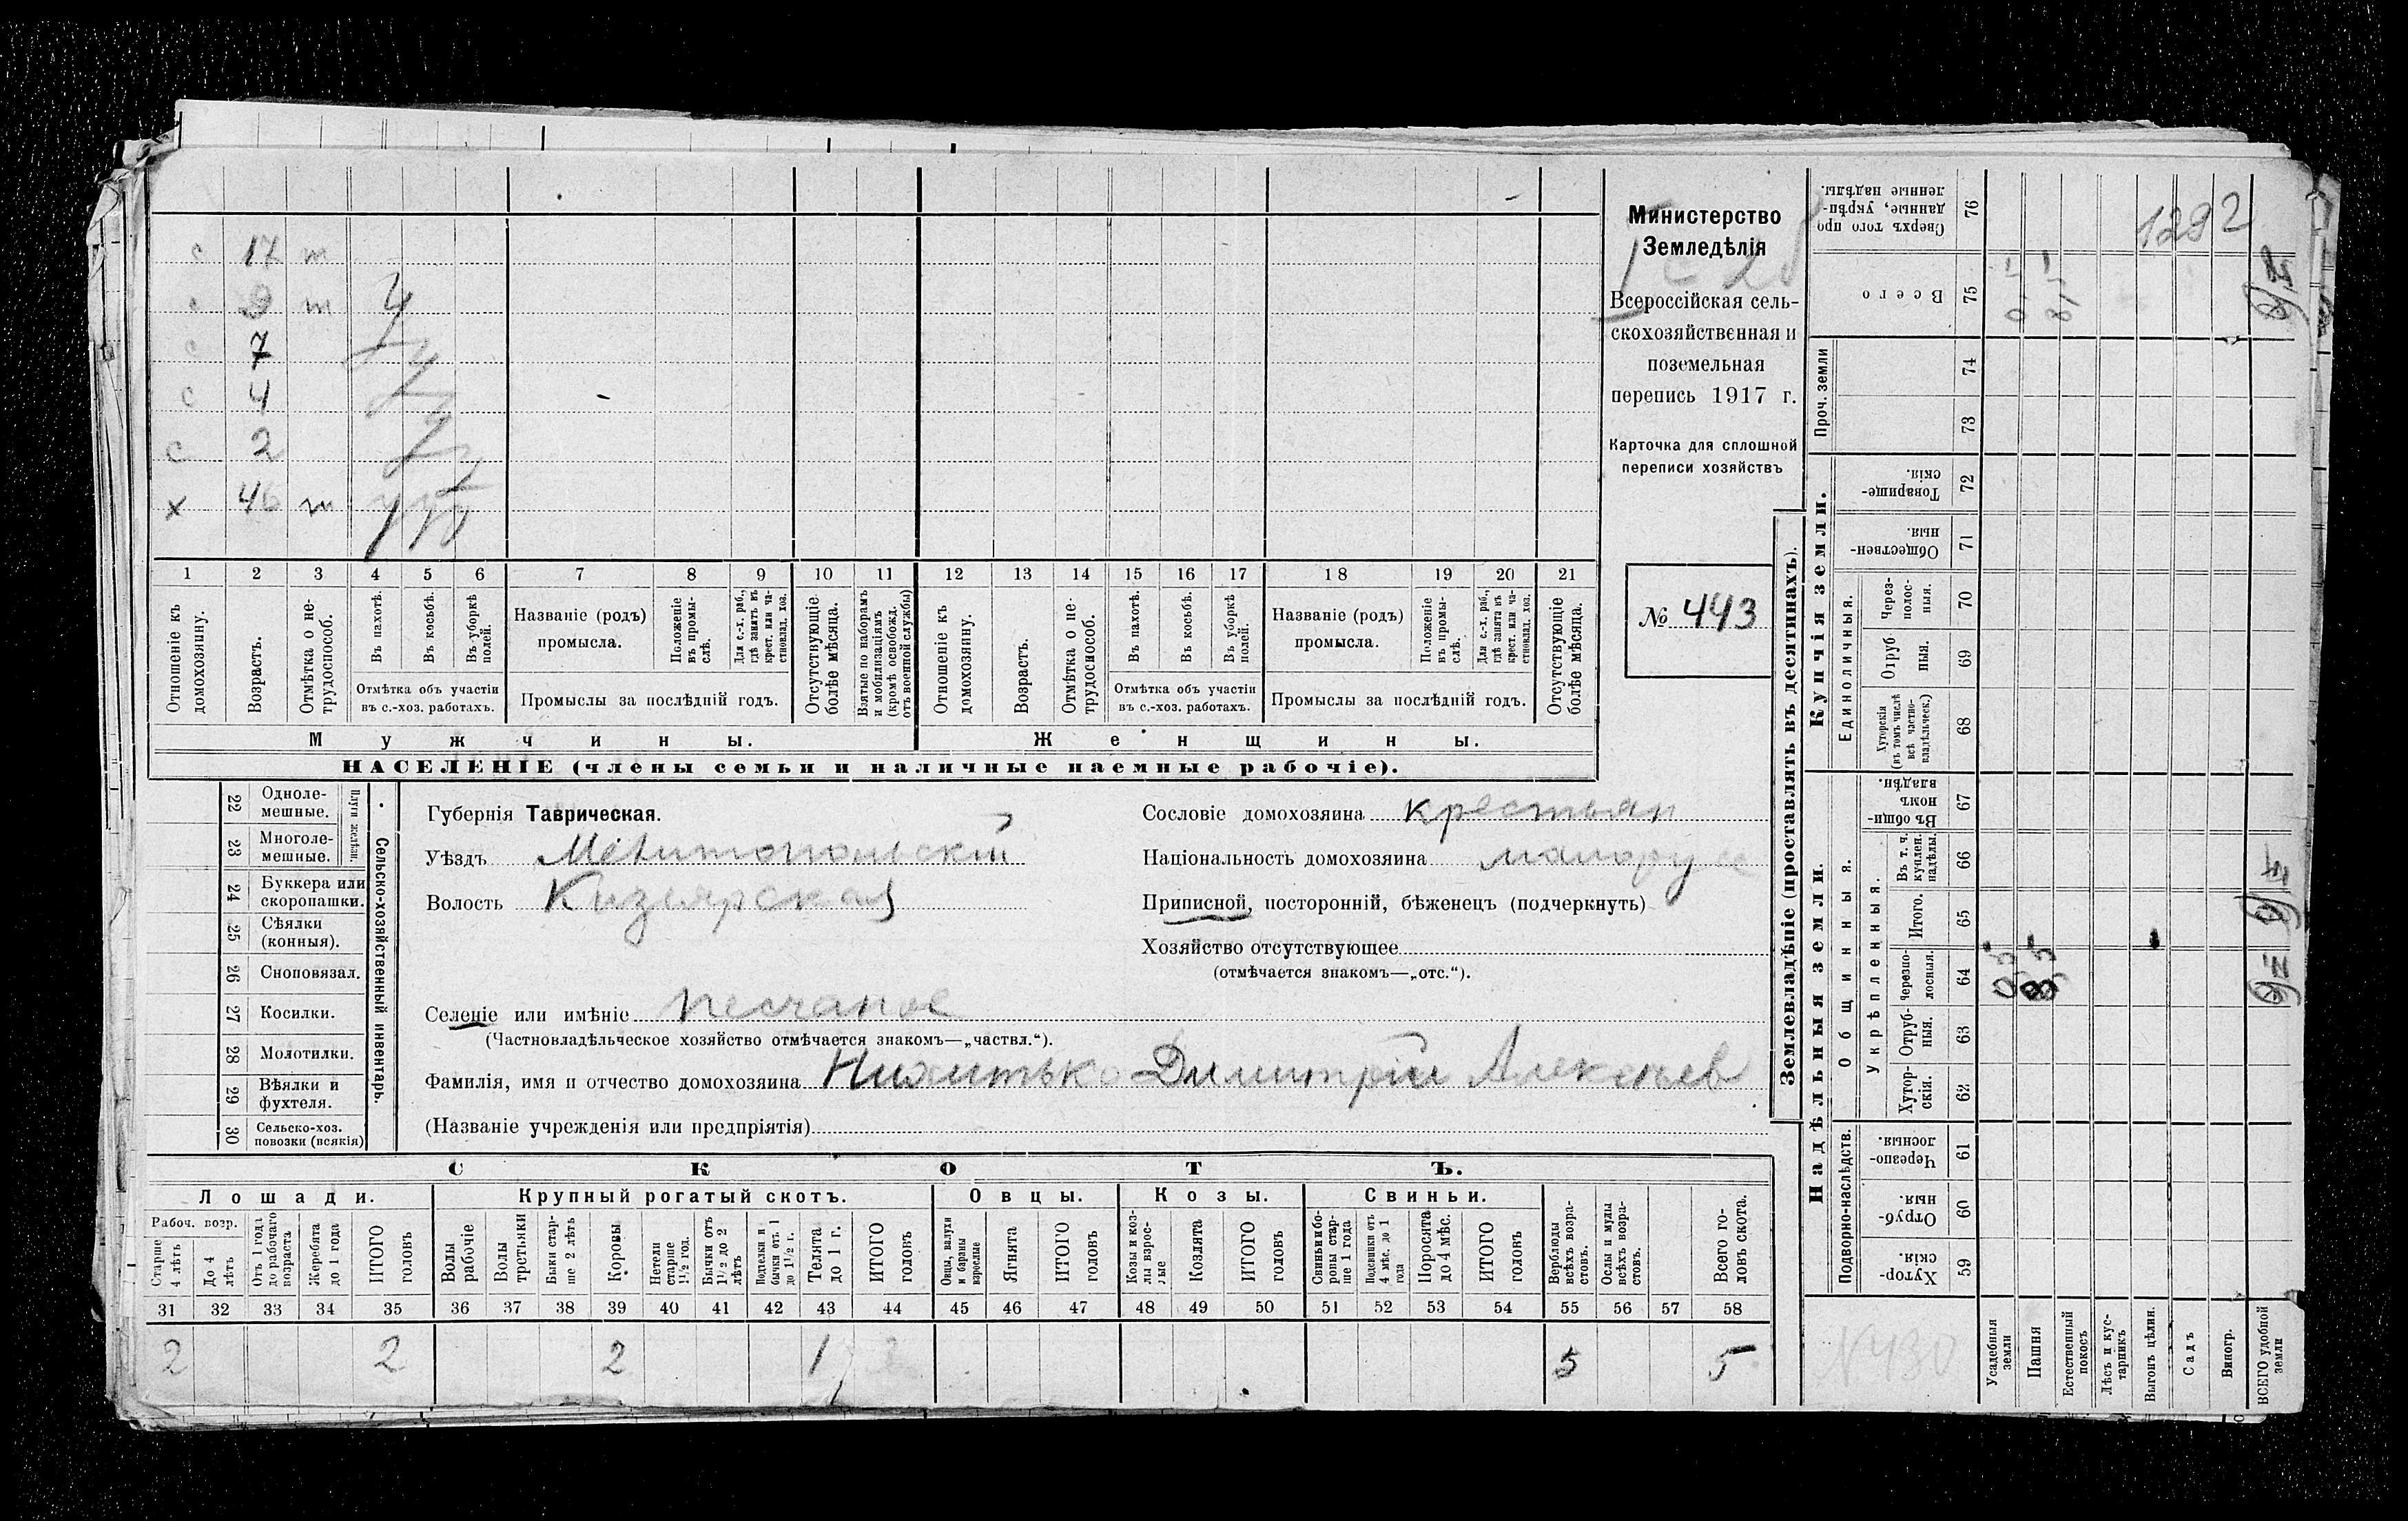 Министерство
Земледѣлія
Всероссійская сель-
скохозяйственная и
поземельная
перепись 1917 г.
Карточка для сплошной
переписи хозяйствъ
№ 443
1292
с 17 т
с 9 т
с 7
с 4
с 2
х 46 т
1 2 3 4 5 6 7 8 9 10 11 12 13 14 15 16 17 18 19 20 21
Отношеніе къ домохозяину.
Возрастъ.
Отмѣтка о не-трудоспособ.
Въ пахотѣ.
Въ косьбѣ.
Въ уборкѣ полей.
Отмѣтка объ участіи
въ с.-хоз. работахъ.
Названіе (родъ)
промысла.
Положеніе въ промы-слѣ.
Для с.-х. раб., гдѣ занятъ въ крест. или ча-стновлад. хоз.
Промыслы за послѣдній годъ.
Отсутствующіе болѣе мѣсяца.
Взятые по наборамъ и мобилизаціямъ (кромѣ освобожд. отъ военной службы)
Отношеніе къ домохозяину.
Возрастъ.
Отмѣтка о не-трудоспособ.
Въ пахотѣ.
Въ косьбѣ.
Въ уборкѣ полей.
Отмѣтка объ участіи
въ с.-хоз. работахъ.
Названіе (родъ)
промысла.
Положеніе въ промы-слѣ.
Для с.-х. раб., гдѣ занята въ крест. или ча-стновлад. хоз.
Промыслы за послѣдній годъ.
Отсутствующіе болѣе мѣсяца.
Мужчины. Женщины.
НАСЕЛЕНІЕ (члены семьи и наличные наемные рабочіе).
Сельско-хозяйственный инвентарь.
Плуги желѣзн.
22 Одноле-мешные.
23 Многоле-мешные.
24 Буккера или скоропашки.
25 Сѣялки (конныя).
26 Сноповязал.
27 Косилки.
28 Молотилки.
29 Вѣялки и фухтеля.
30 Сельско-хоз. повозки (всякія)
Губернія Таврическая.
Уѣздъ Мелитопольскій
Волость Кизеярская
Селеніе или имѣніе Песчаное
(Частновладѣльческое хозяйство отмѣчается знакомъ—„частвл.“).
Сословіе домохозяина крестьян
Національность домохозяина малорусс
Приписной, посторонній, бѣженецъ (подчеркнуть)
Хозяйство отсутствующее
(отмѣчается знакомъ—„отс.“).
Фамилія, имя и отчество домохозяина Димитрій Алексеев
(Названіе учрежденія или предпріятія)
СКОТЪ.
Лошади. Крупный рогатый скотъ. Овцы. Козы. Свиньи.
Рабоч. возр.
Старше 4 лѣтъ
До 4 лѣтъ
Отъ 1 года до рабочаго возраста
Жеребята до 1 года
ИТОГО головъ
Волы рабочіе
Волы третьяки
Быки стар-ше 2 лѣтъ
Коровы
Нетели старше 1½ год.
Бычки отъ 1½ до 2 лѣтъ
Подтелки и бычки отъ 1 до 1½ г.
Телята до 1 г.
ИТОГО головъ
Овцы, валухи и бараны взрослые
Ягнята
ИТОГО головъ
Козы и коз-лы взрос-лые
Козлята
ИТОГО головъ
Свиньи и бо-ровы стар-ше 1 года
Подсвинки отъ 4 мѣс. до 1 года
Поросята до 4 мѣс.
ИТОГО головъ
Верблюды всѣхъ возра-стовъ.
Ослы и мулы всѣхъ возра-стовъ.
Всего го-ловъ скота.
31 32 33 34 35 36 37 38 39 40 41 42 43 44 45 46 47 48 49 50 51 52 53 54 55 56 57 58
2 2 2 1 5 5
Землевладѣніе (проставлять въ десятинахъ).
Купчія земли.
Надѣльныя земли.
Проч. земли
Единоличныя.
Общинныя.
Укрѣпленныя.
Подворно-наслѣдств.
76 Сверхъ того про-данные, укрѣп-ленные надѣлы.
75 Всего
74
73
72 Товарище-скія.
71 Обществен-ныя.
70 Через-полос-ныя.
69 Отруб-ныя.
68 Хуторскія (въ томъ числѣ всѣ частно-владѣльческ.)
67 Въ общи-номъ владѣн.
66 Въ т. ч. куплен. надѣлы.
65 Итого.
64 Черезпо-лосныя.
63 Отруб-ныя.
62 Хутор-скія.
61 Черезпо-лосныя.
60 Отруб-ныя.
59 Хутор-скія.
0,5 8,5
0,5 8,5
№ 430
Усадебныя земли
Пашня
Естественный покосъ
Лѣсъ и кус-тарникъ
Выгонъ цѣлин.
Садъ
Виногр.
ВСЕГО удобной земли